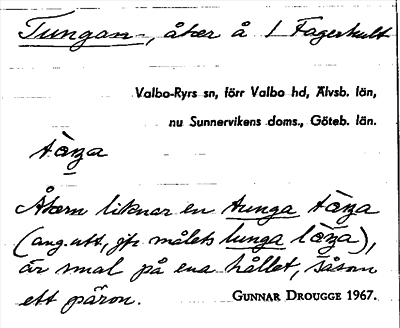 Tungan-, åker å 1 Fagerhult
Valbo-Ryrs sn, förr Valbo hd, Älvsb. län,
nu Sunnervikens doms., Göteb. län.
Åkern liknar en tunga
(ang. utt. jfr målets lunga),
är smal på ena hållet, såsom
ett päron. GUNNAR DROUGGE 1967.